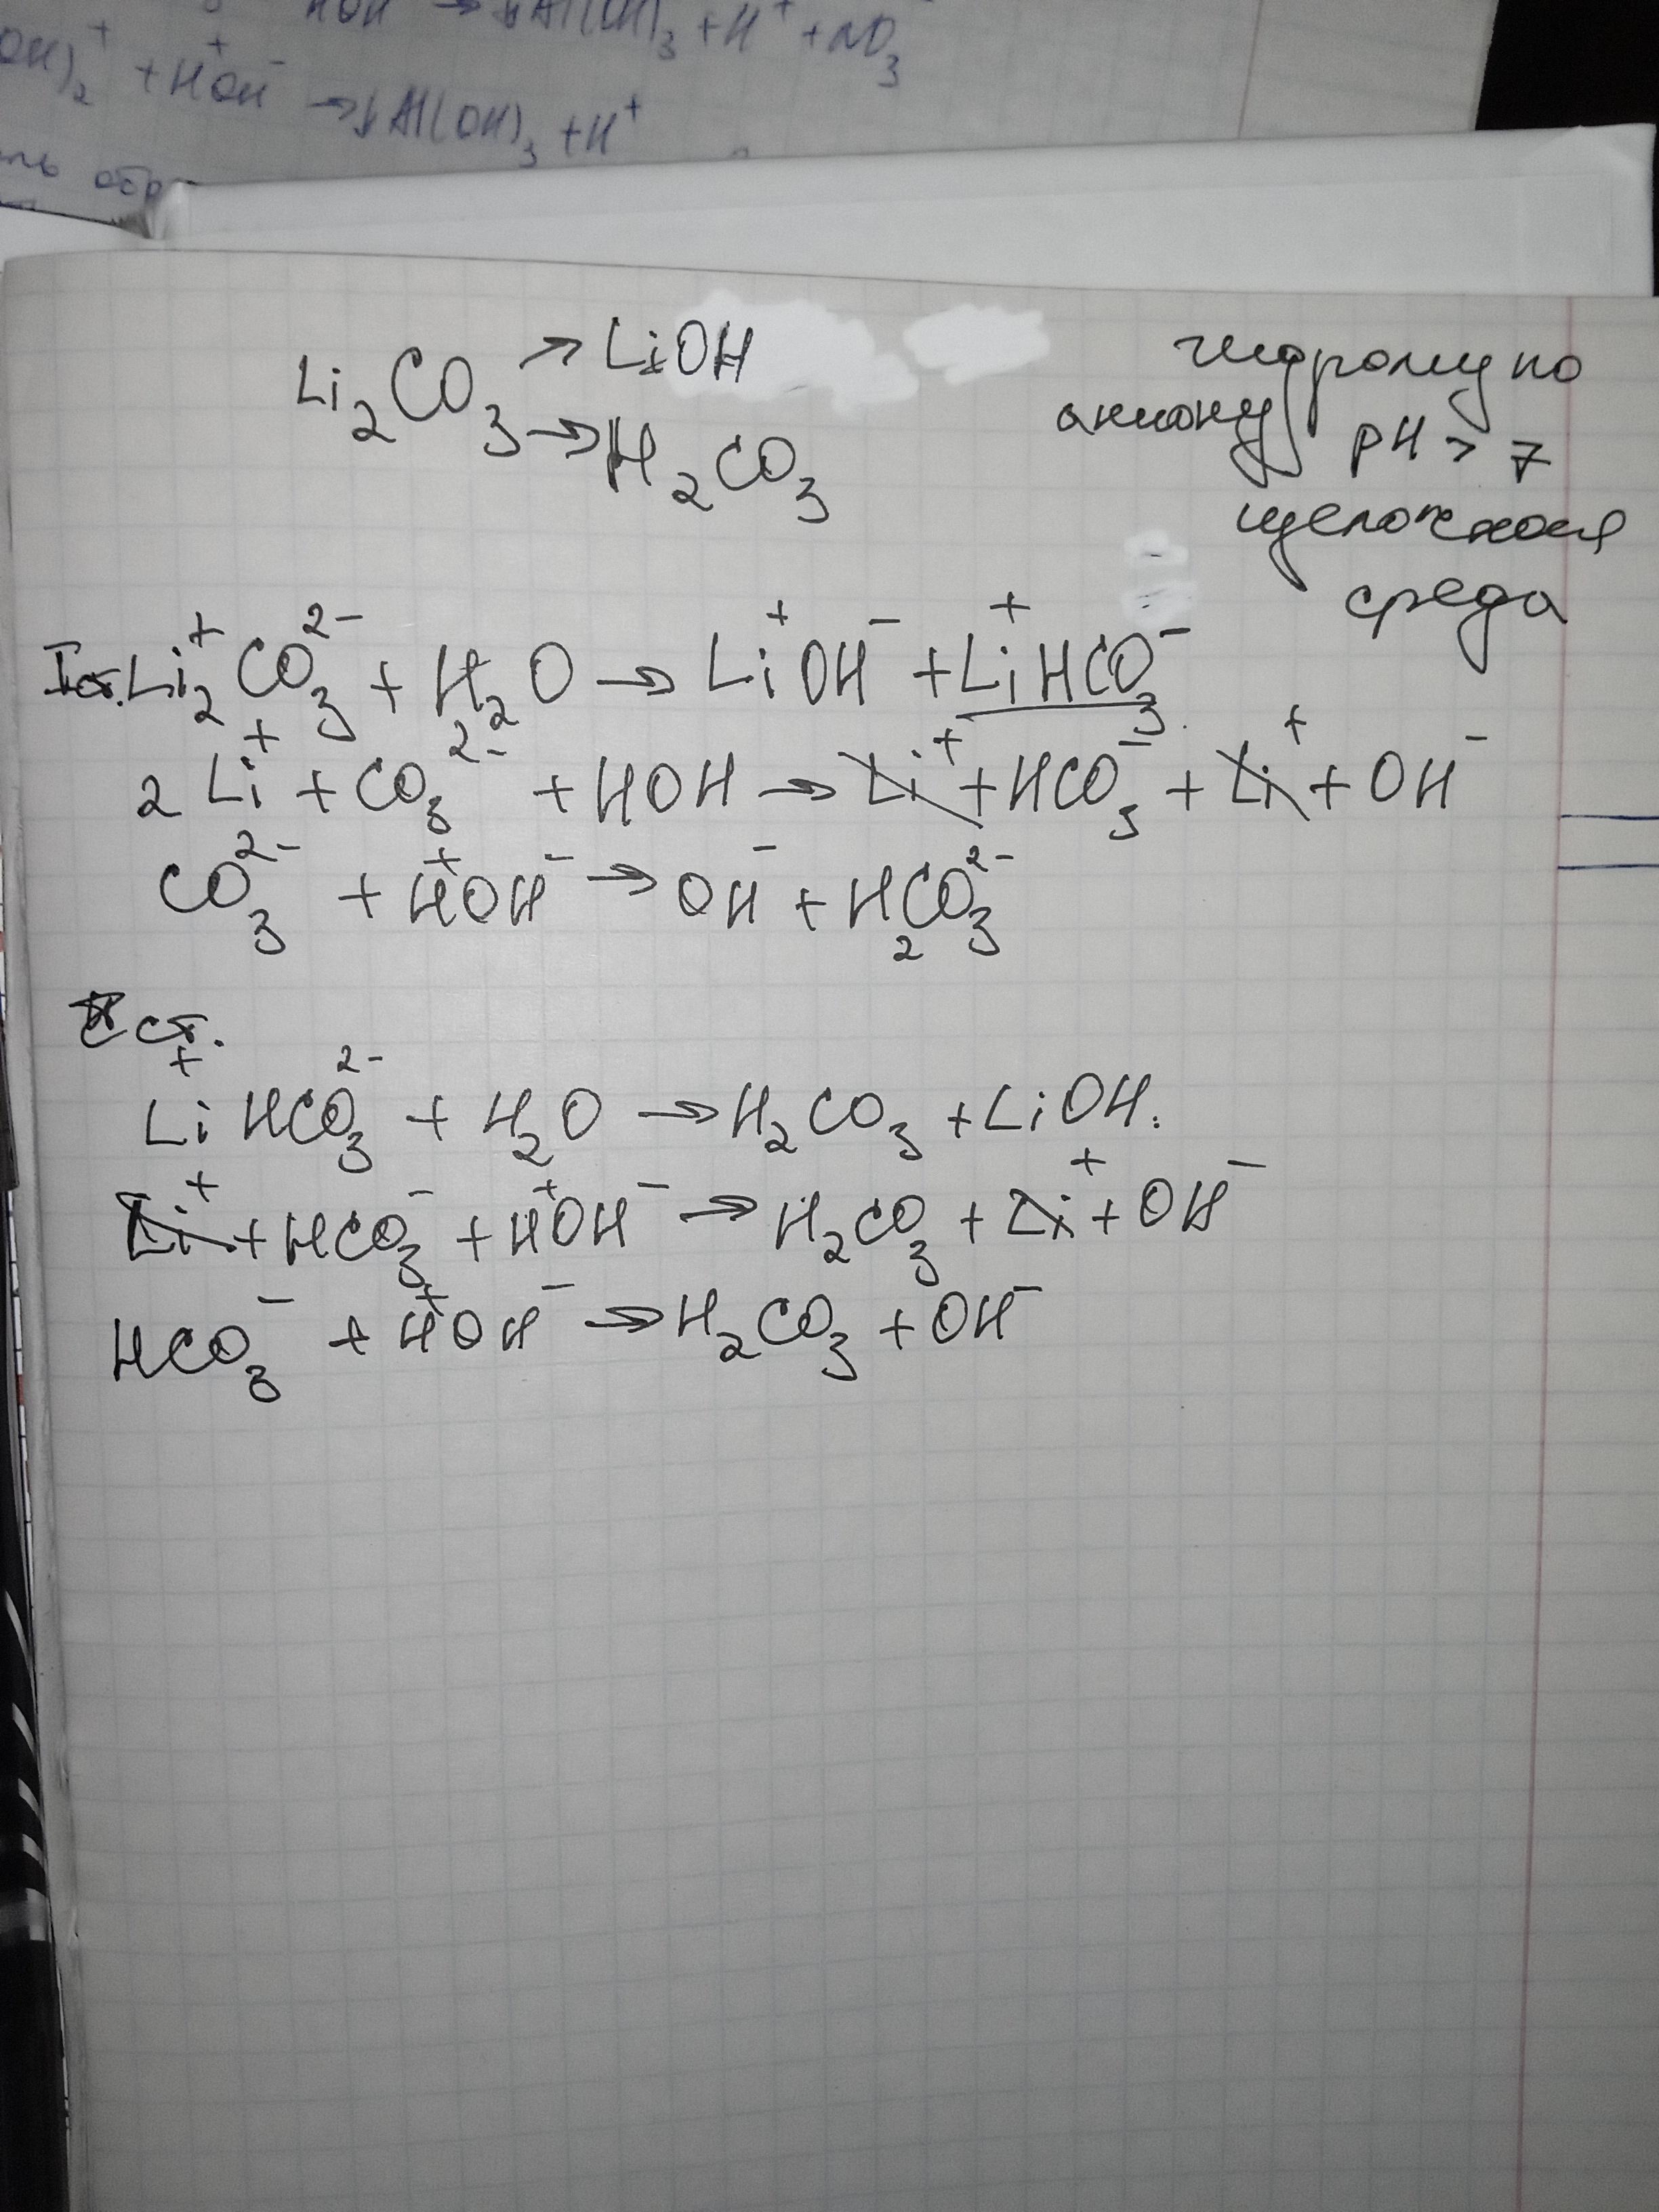 HOH → ↓Al(OH)₃ + H⁺ + NO₃
OH)₂⁺ + H⁺OH⁻ → ↓Al(OH)₃ + H⁺
Li₂CO₃ → LiOH
→ H₂CO₃
гидролиз по
аниону
pH > 7
щелочная
среда
I ст. Li₂⁺CO₃²⁻ + H₂O → Li⁺OH⁻ + Li⁺HCO₃⁻
2Li⁺ + CO₃²⁻ + HOH → Li⁺ + HCO₃⁻ + Li⁺ + OH⁻
CO₃²⁻ + H⁺OH⁻ → OH⁻ + H₂CO₃²⁻
ст.
Li⁺HCO₃²⁻ + H₂O → H₂CO₃ + LiOH.
Li⁺ + HCO₃⁻ + H⁺OH⁻ → H₂CO₃ + Li⁺ + OH⁻
HCO₃⁻ + H⁺OH⁻ → H₂CO₃ + OH⁻